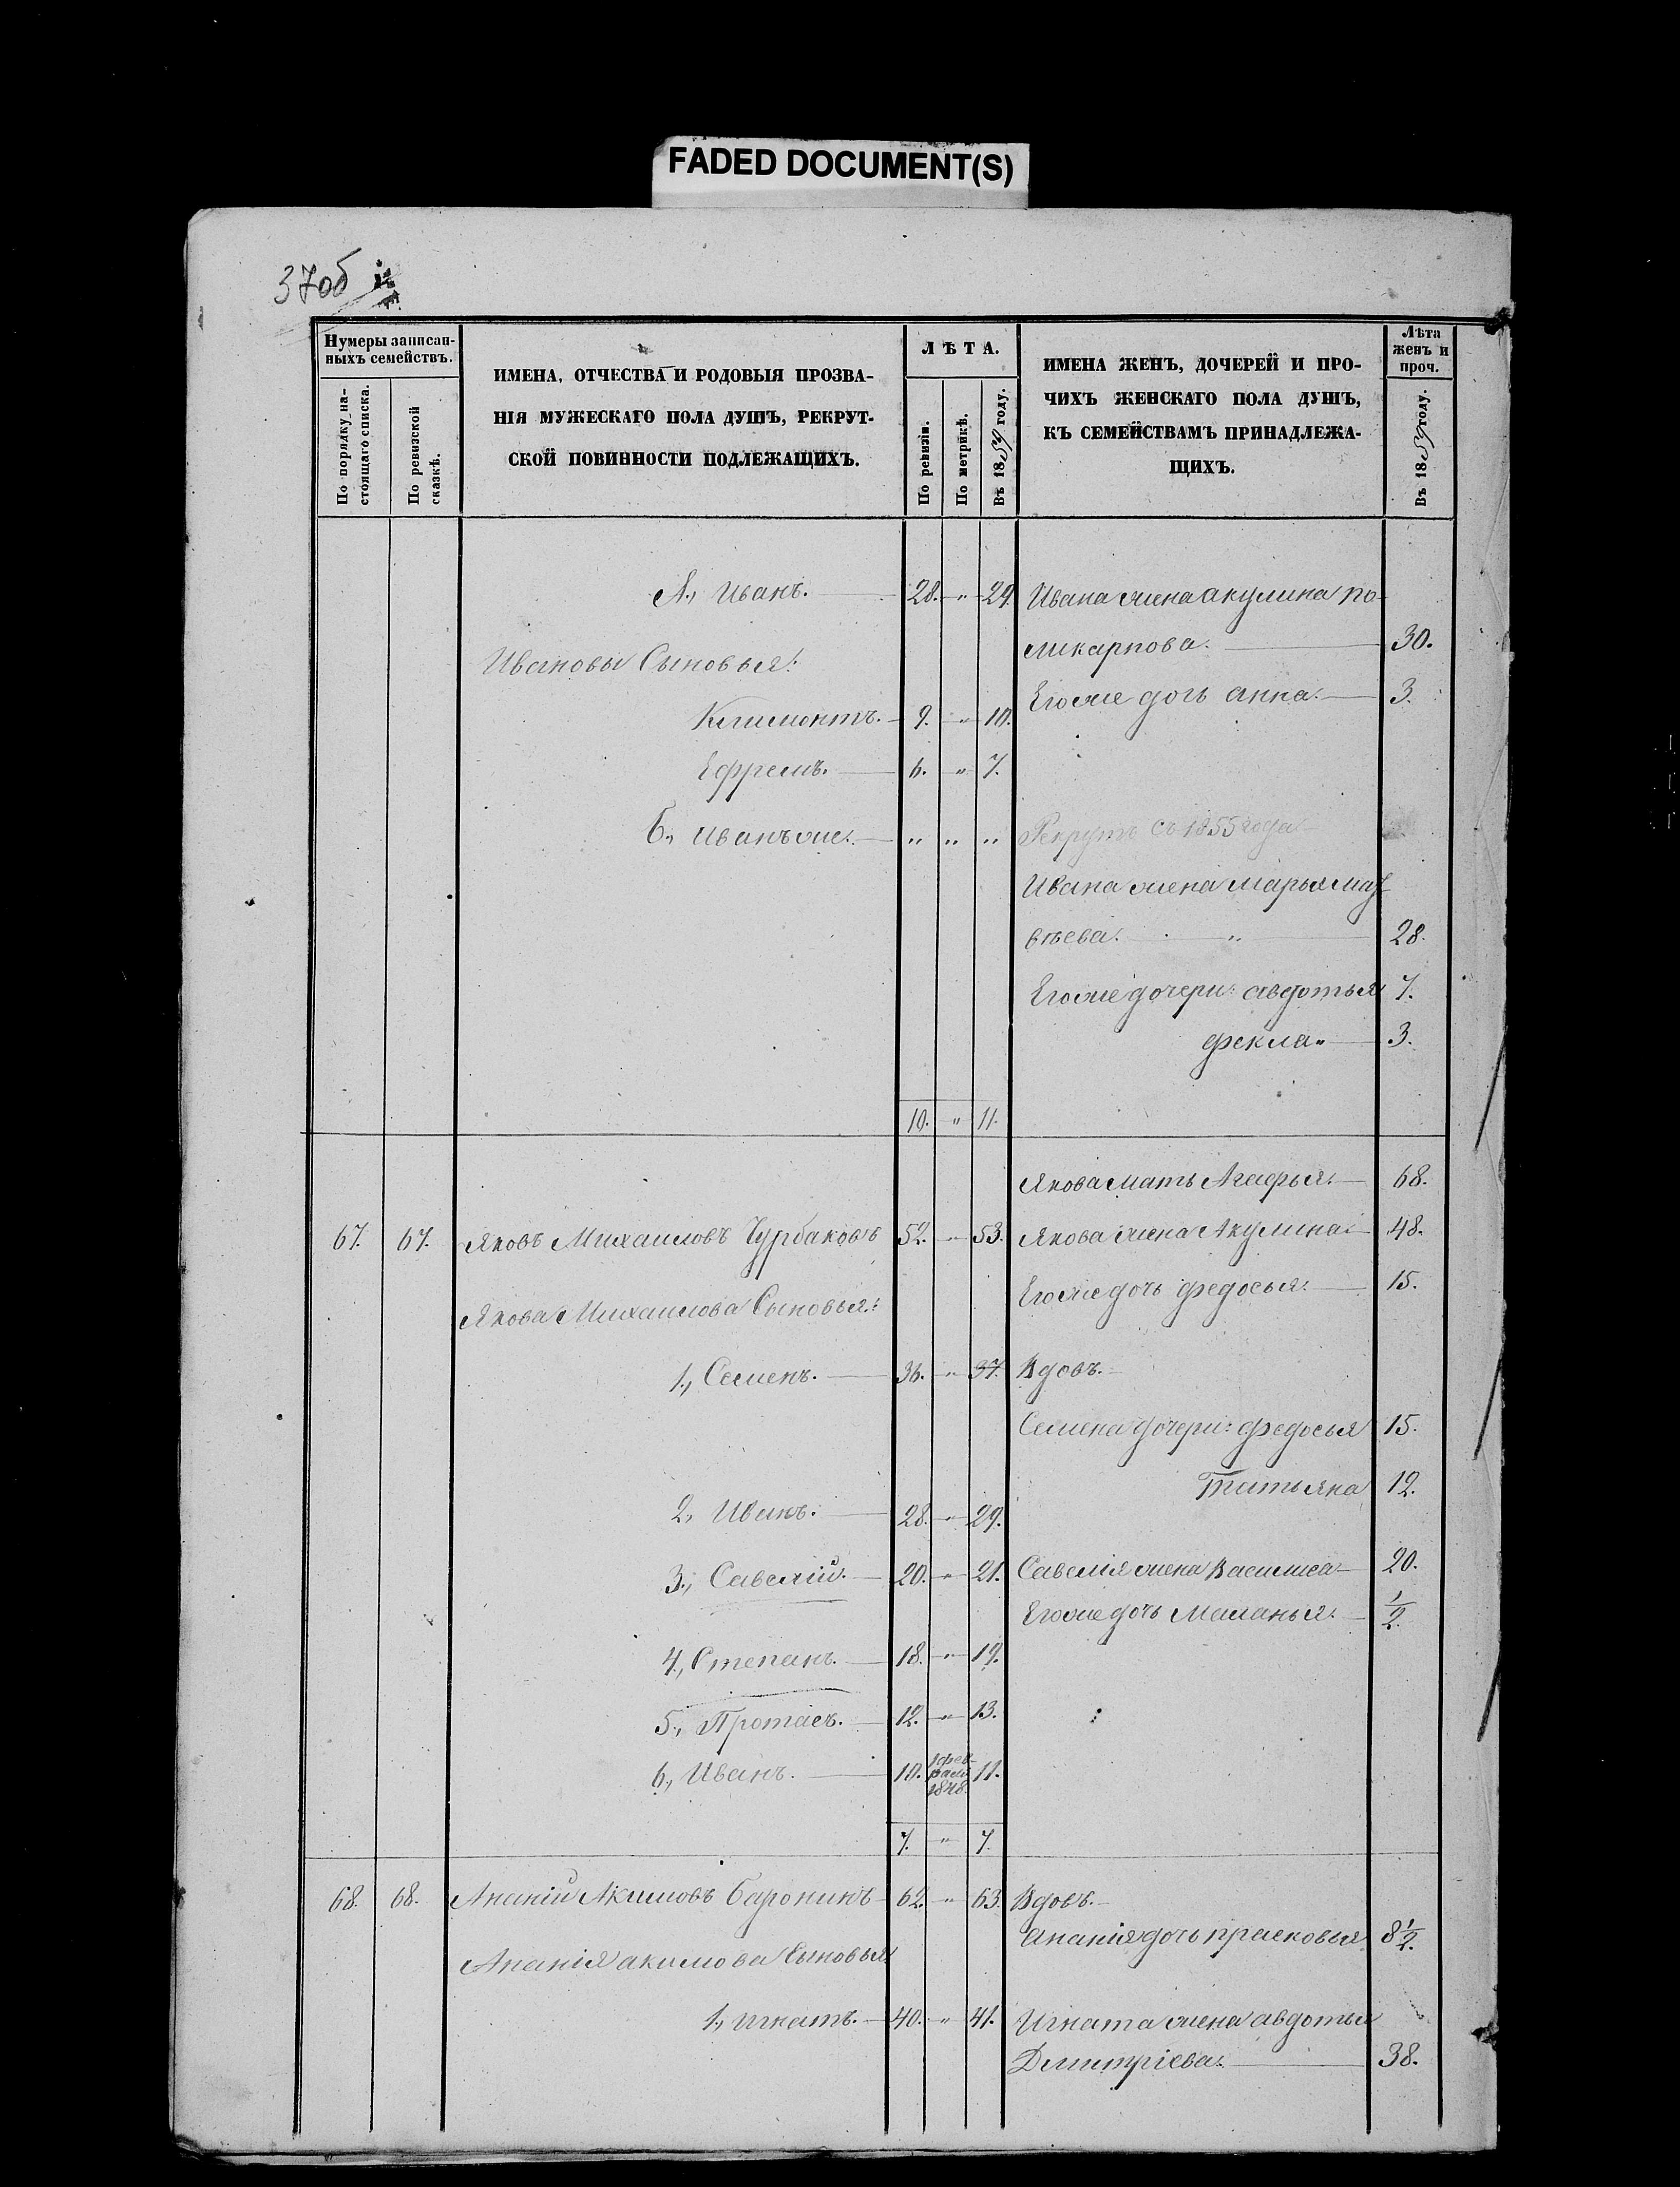 FADED DOCUMENT(S)
37об
Нумеры записан-
ныхъ семействъ.
По порядку на-
стоящаго списка.
По ревизской
сказкѣ.
ИМЕНА, ОТЧЕСТВА И РОДОВЫЯ ПРОЗВА-
НІЯ МУЖЕСКАГО ПОЛА ДУШЪ, РЕКРУТ-
СКОЙ ПОВИННОСТИ ПОДЛЕЖАЩИХЪ.
ЛѢТА.
По ревизіи.
По метрикѣ.
Въ 1859 году.
ИМЕНА ЖЕНЪ, ДОЧЕРЕЙ И ПРО-
ЧИХЪ ЖЕНСКАГО ПОЛА ДУШЪ,
КЪ СЕМЕЙСТВАМЪ ПРИНАДЛЕЖА-
ЩИХЪ.
Лѣта
женъ и
проч.
Въ 1859 году.
А., Иванъ. 28. " 29. Ивана жена акулина по-
ликарпова. 30.
Ивановы Сыновья:
Егоже дочь анна. 3.
Климонтъ. 9. " 10.
Ефремъ. 6. " 7.
Б., Иванъ же. " " " Рекрутъ съ 1855 года
Ивана жена Марья Мат-
вѣева. " 28.
Егоже дочери: авдотья 7.
фекла " 3.
10. " 11.
Якова мать Агафья. 68.
67. 67. Яковъ Михаиловъ Чурбаковъ 52. " 53. Якова жена Акулина 48.
Егоже дочь федосья. 15.
Якова Михаилова Сыновья:
1., Семенъ. 36. " 37. Вдовъ.
Семена дочери: федосья 15.
Татьяна 12.
2., Иванъ. 28. " 29.
3., Савелій. 20. " 21. Савелія жена Василиса 20.
Егоже дочь Маланья. 1/2.
4., Степанъ. 18. " 19.
5., Протасъ. 12. " 13.
6., Иванъ. 10. 1 фев-
рал.
1848. 11.
7. " 7.
68. 68. Ананій Акимовъ Саронинъ 62. " 63. Вдовъ.
Ананія дочь прасковья 8 1/2.
Ананія акимова Сыновья
1., игнатъ. 40. " 41. Игната жена авдотья
Дмитріева. 38.